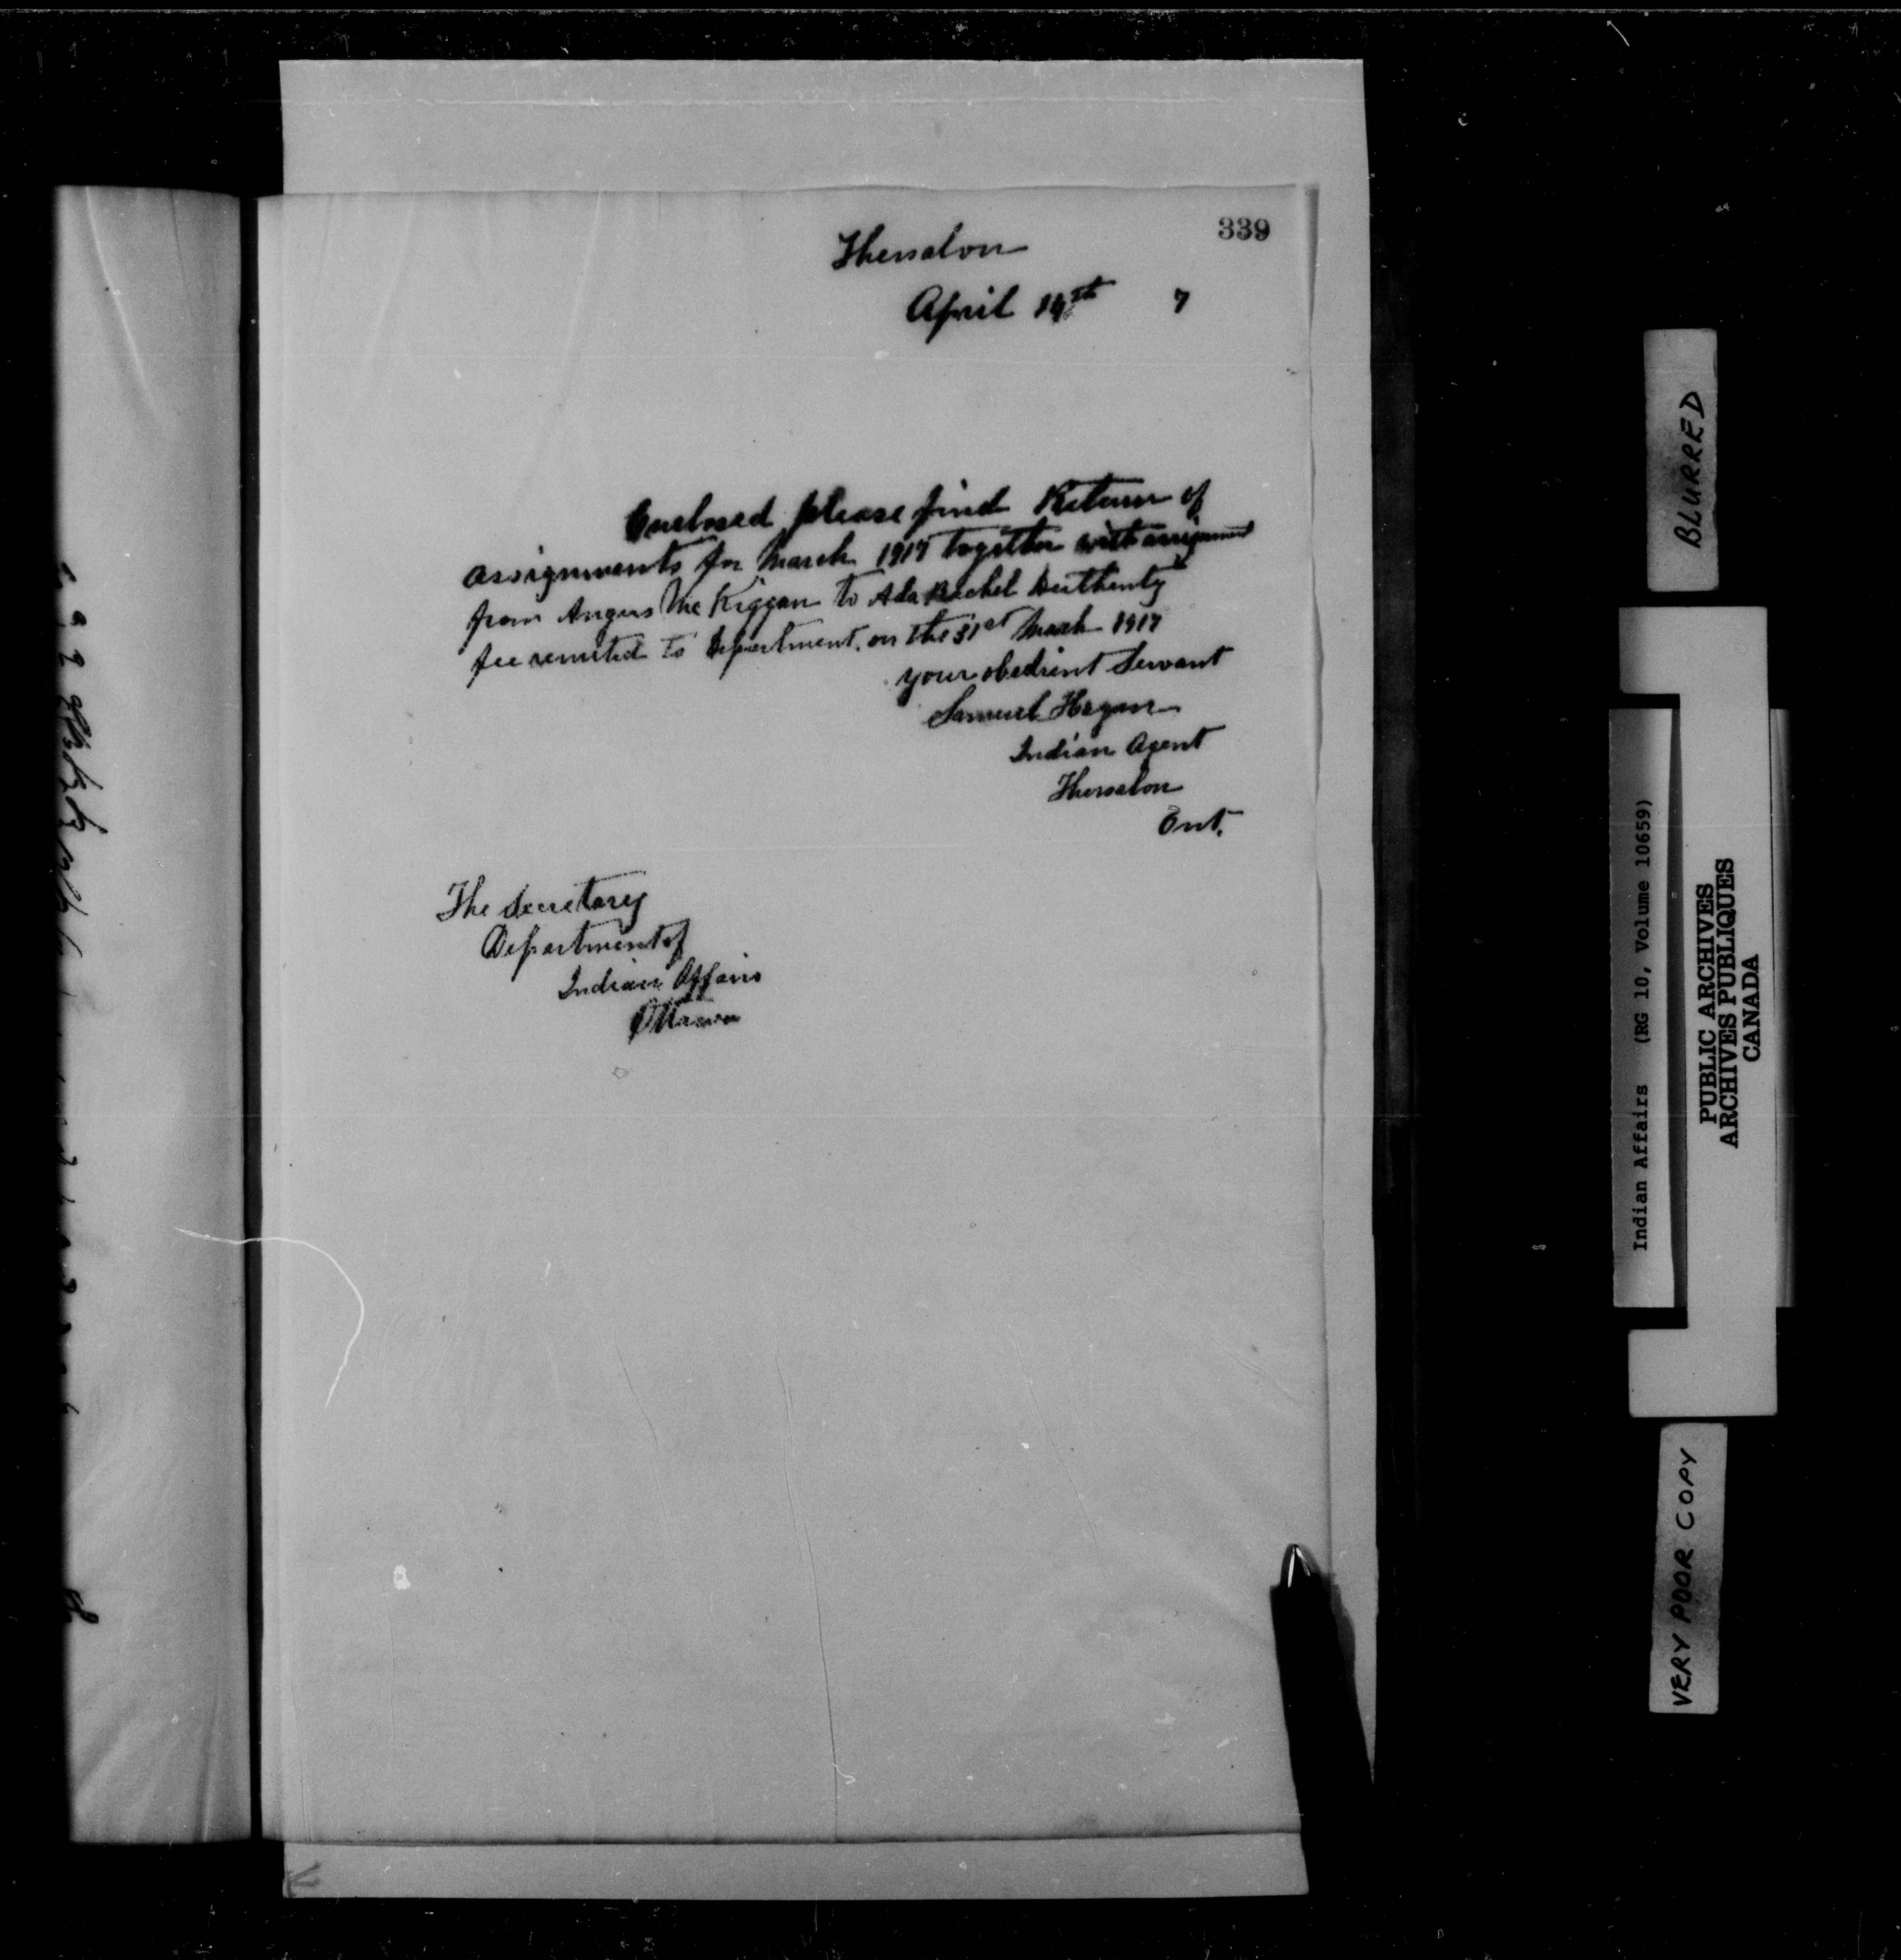 339
Thessalon
April 14th 7
Enclosed please find Return of
assignments for March 1917 together with assignment
from Angus McKiggan to Ada Rachel
fee remitted to Department. on the 31st March 1917
your obedient Servant
Samuel Hagan
Indian Agent
Thessalon
Ont.
The Secretary
Department of
Indian Affairs
Ottawa
BLURRED
Indian Affairs (RG 10, Volume 10659)
PUBLIC ARCHIVES
ARCHIVES PUBLIQUES
CANADA
VERY POOR COPY